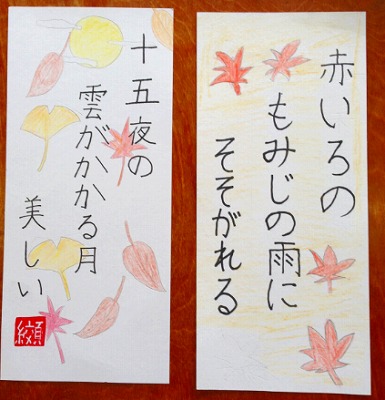 赤いろの
もみじの雨に
そそがれる
十五夜の
雲がかかる月
美しい
纐